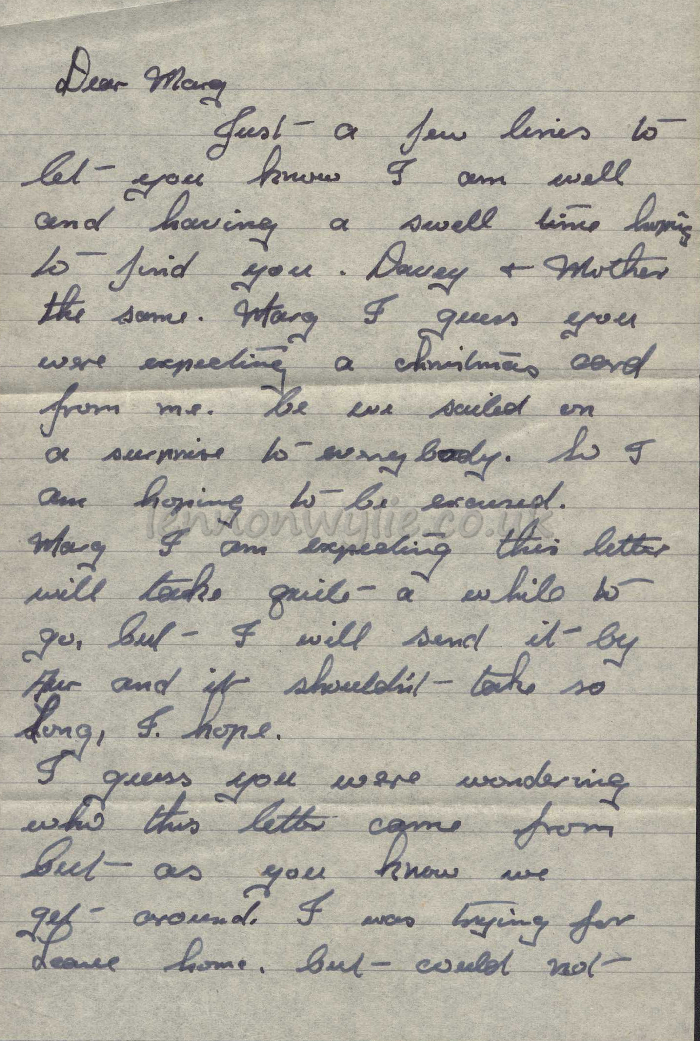 Dear Marg
Just a few lines to
let you know I am well
and having a swell time hoping
to find you. Davey + Mother
the same. Marg I guess you
were expecting a christmas card
from me. be we sailed on
a surprise to everybody. So I
am hoping to be excused.
lennonwylie.co.uk
Marg I am expecting this letter
will take quite a while to
go, but I will send it by
Air and it shouldn't take so
Long, I. hope.
I guess you were wondering
who this letter came from
but as you know we
get around. I was trying for
Leave home. but could not